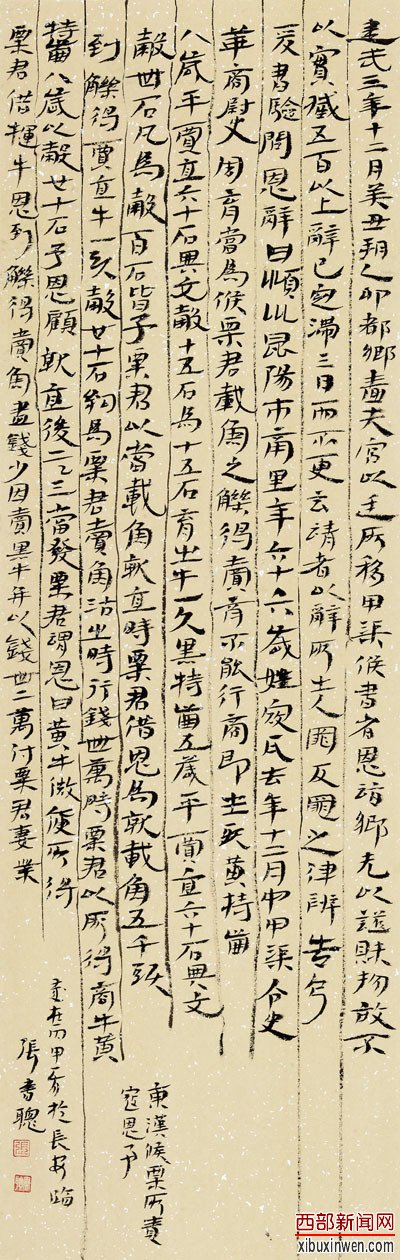 建武三年十二月癸丑朔乙卯都鄉嗇夫宮以廷所移甲渠候書召恩詣鄉先以證財物故不
以實臧五百以上辭已定滿三日而不更言請者以辭所出入罪反罪之律辨告乃
爰書驗問恩辭曰潁川昆陽市南里年六十六歲姓寇氏去年十二月中甲渠令史
華商尉史周育當為候粟君載魚之觻得賣育不能行商即出牛黃特齒
八歲平賈直六十石與交穀十五石為十五石育出牛一頭黑特齒五歲平賈直六十石與交
穀卌石凡為穀百石皆予粟君以當載魚就直時粟君借恩為就載魚五千頭
到觻得賈直牛一頭穀廿七石約為粟君賣魚沽出時行錢卌萬時粟君以所得商牛黃
特齒八歲以穀廿七石予恩顧就直後二三當發粟君謂恩曰黃牛微庾所得
粟君借牛恩到觻得賣魚盡錢少因賣黑牛并以錢卅二萬付粟君妻業
東漢候粟所責
寇恩事
歲在於長安臨
張書聰
西部新闻网
xibuxinwen.com